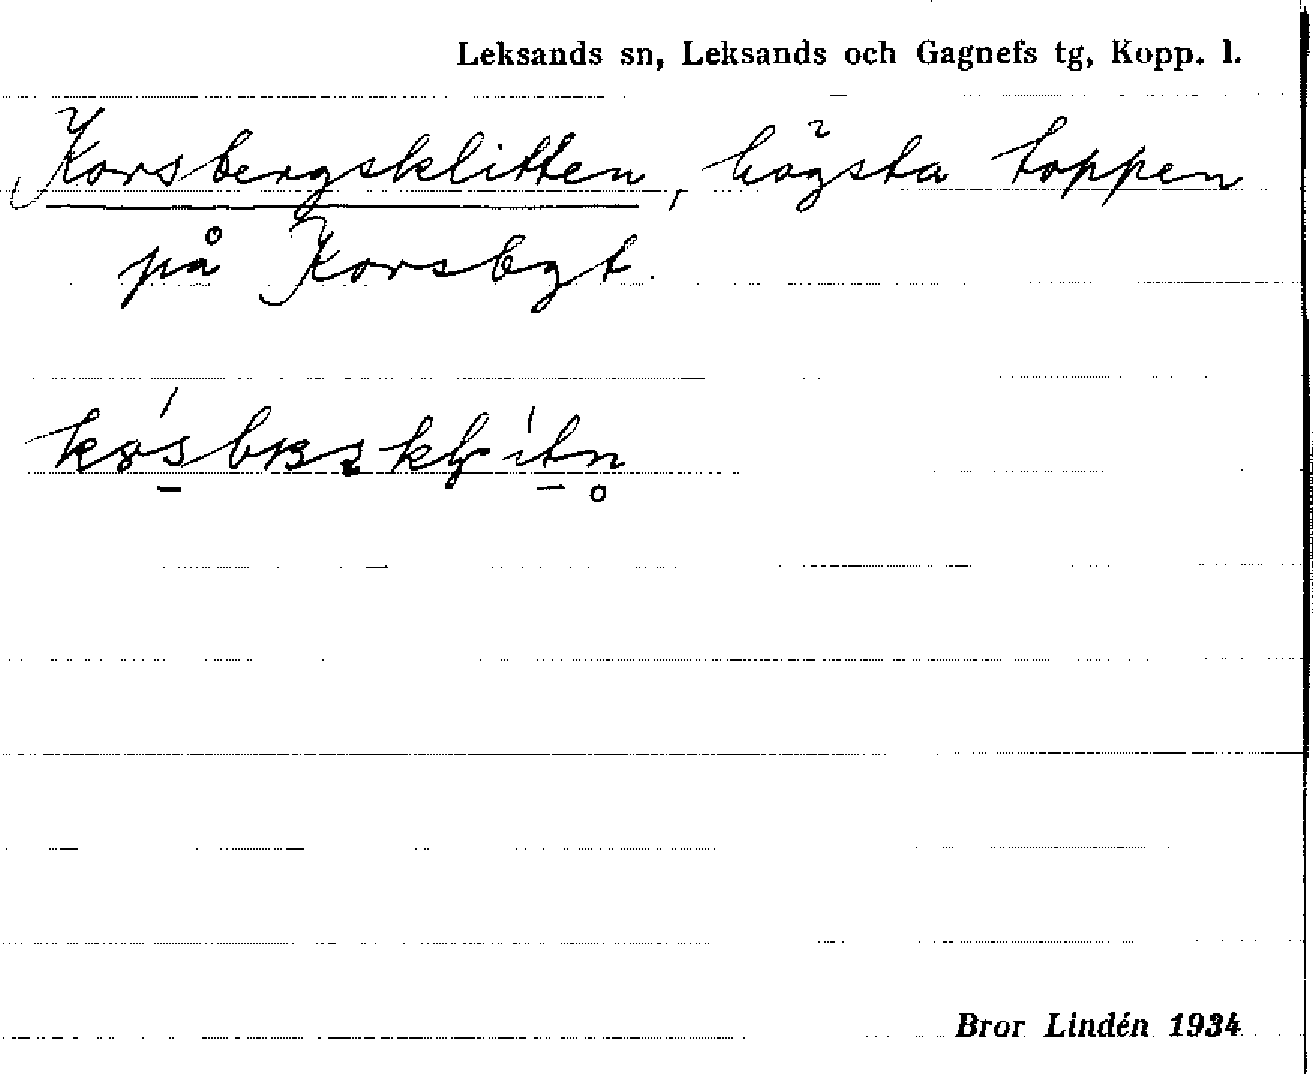 Leksands sn, Leksands och Gagnefs tg, Kopp. l.
Korsbergsklitten, högsta toppen
på Korsbgt.
Bror Lindén 1934